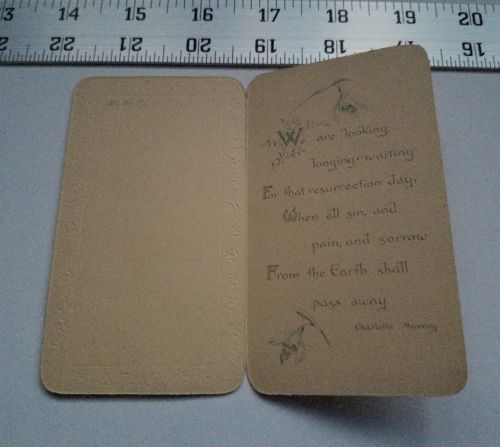 13 14 15 16 17 18 19 20
22 21 20 19 18 17 16
We are looking,
longing, waiting
For that resurrection day,
When all sin, and
pain, and sorrow
From the Earth shall
pass away
Charlotte Murray